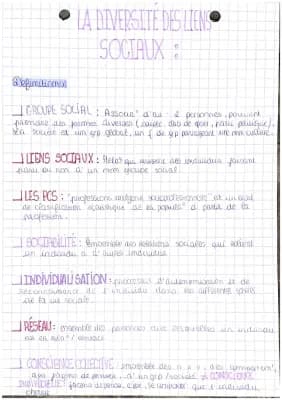 LA DIVERSITÉ DES LIENS
SOCIAUX :
Définitions
GROUPE SOCIAL : d'au - 2 personnes, pouvant
prendre des formes diverses ( club de sport, parti politique).
la société est un grp global, un de grp partageant une mm culture.
LIENS SOCIAUX : Relat° qui unissent des individus faisant
parti ou non à un mm groupe social.
LES PCS : "professions catégorie socioprofessionnelle" est un outil
de classification de la populat° à partir de la
profession.
SOCIABILITÉ : Ensemble des relations sociales qui relient
un individu à d'autres individus
INDIVIDUALISATION : processus d'autonomisation et de
reconnaissance de l'individu dans les différentes sphères
de la vie sociale.
RÉSEAU : ensemble des personnes avec lesquelles un individu
est en relat°
CONSCIENCE COLLECTIVE : ensemble des
façons de penser d'un grp/société ≠ CONSCIENCE
INDIVIDUELLE : que l'individu